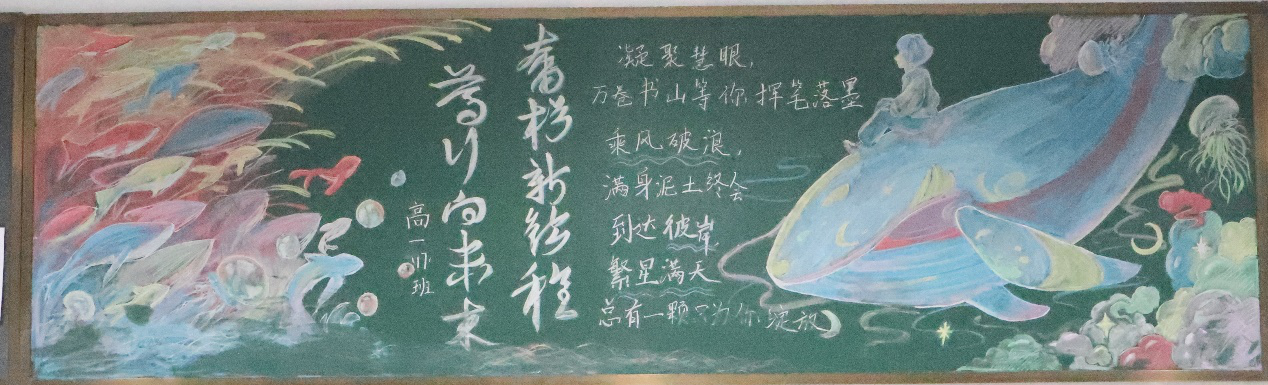 奋楫新征程
笃行向未来
高一班
凝聚慧眼,
万卷书山等你挥笔落墨
乘风破浪,
满身泥土终会
到达彼岸
繁星满天
总有一颗只为你绽放